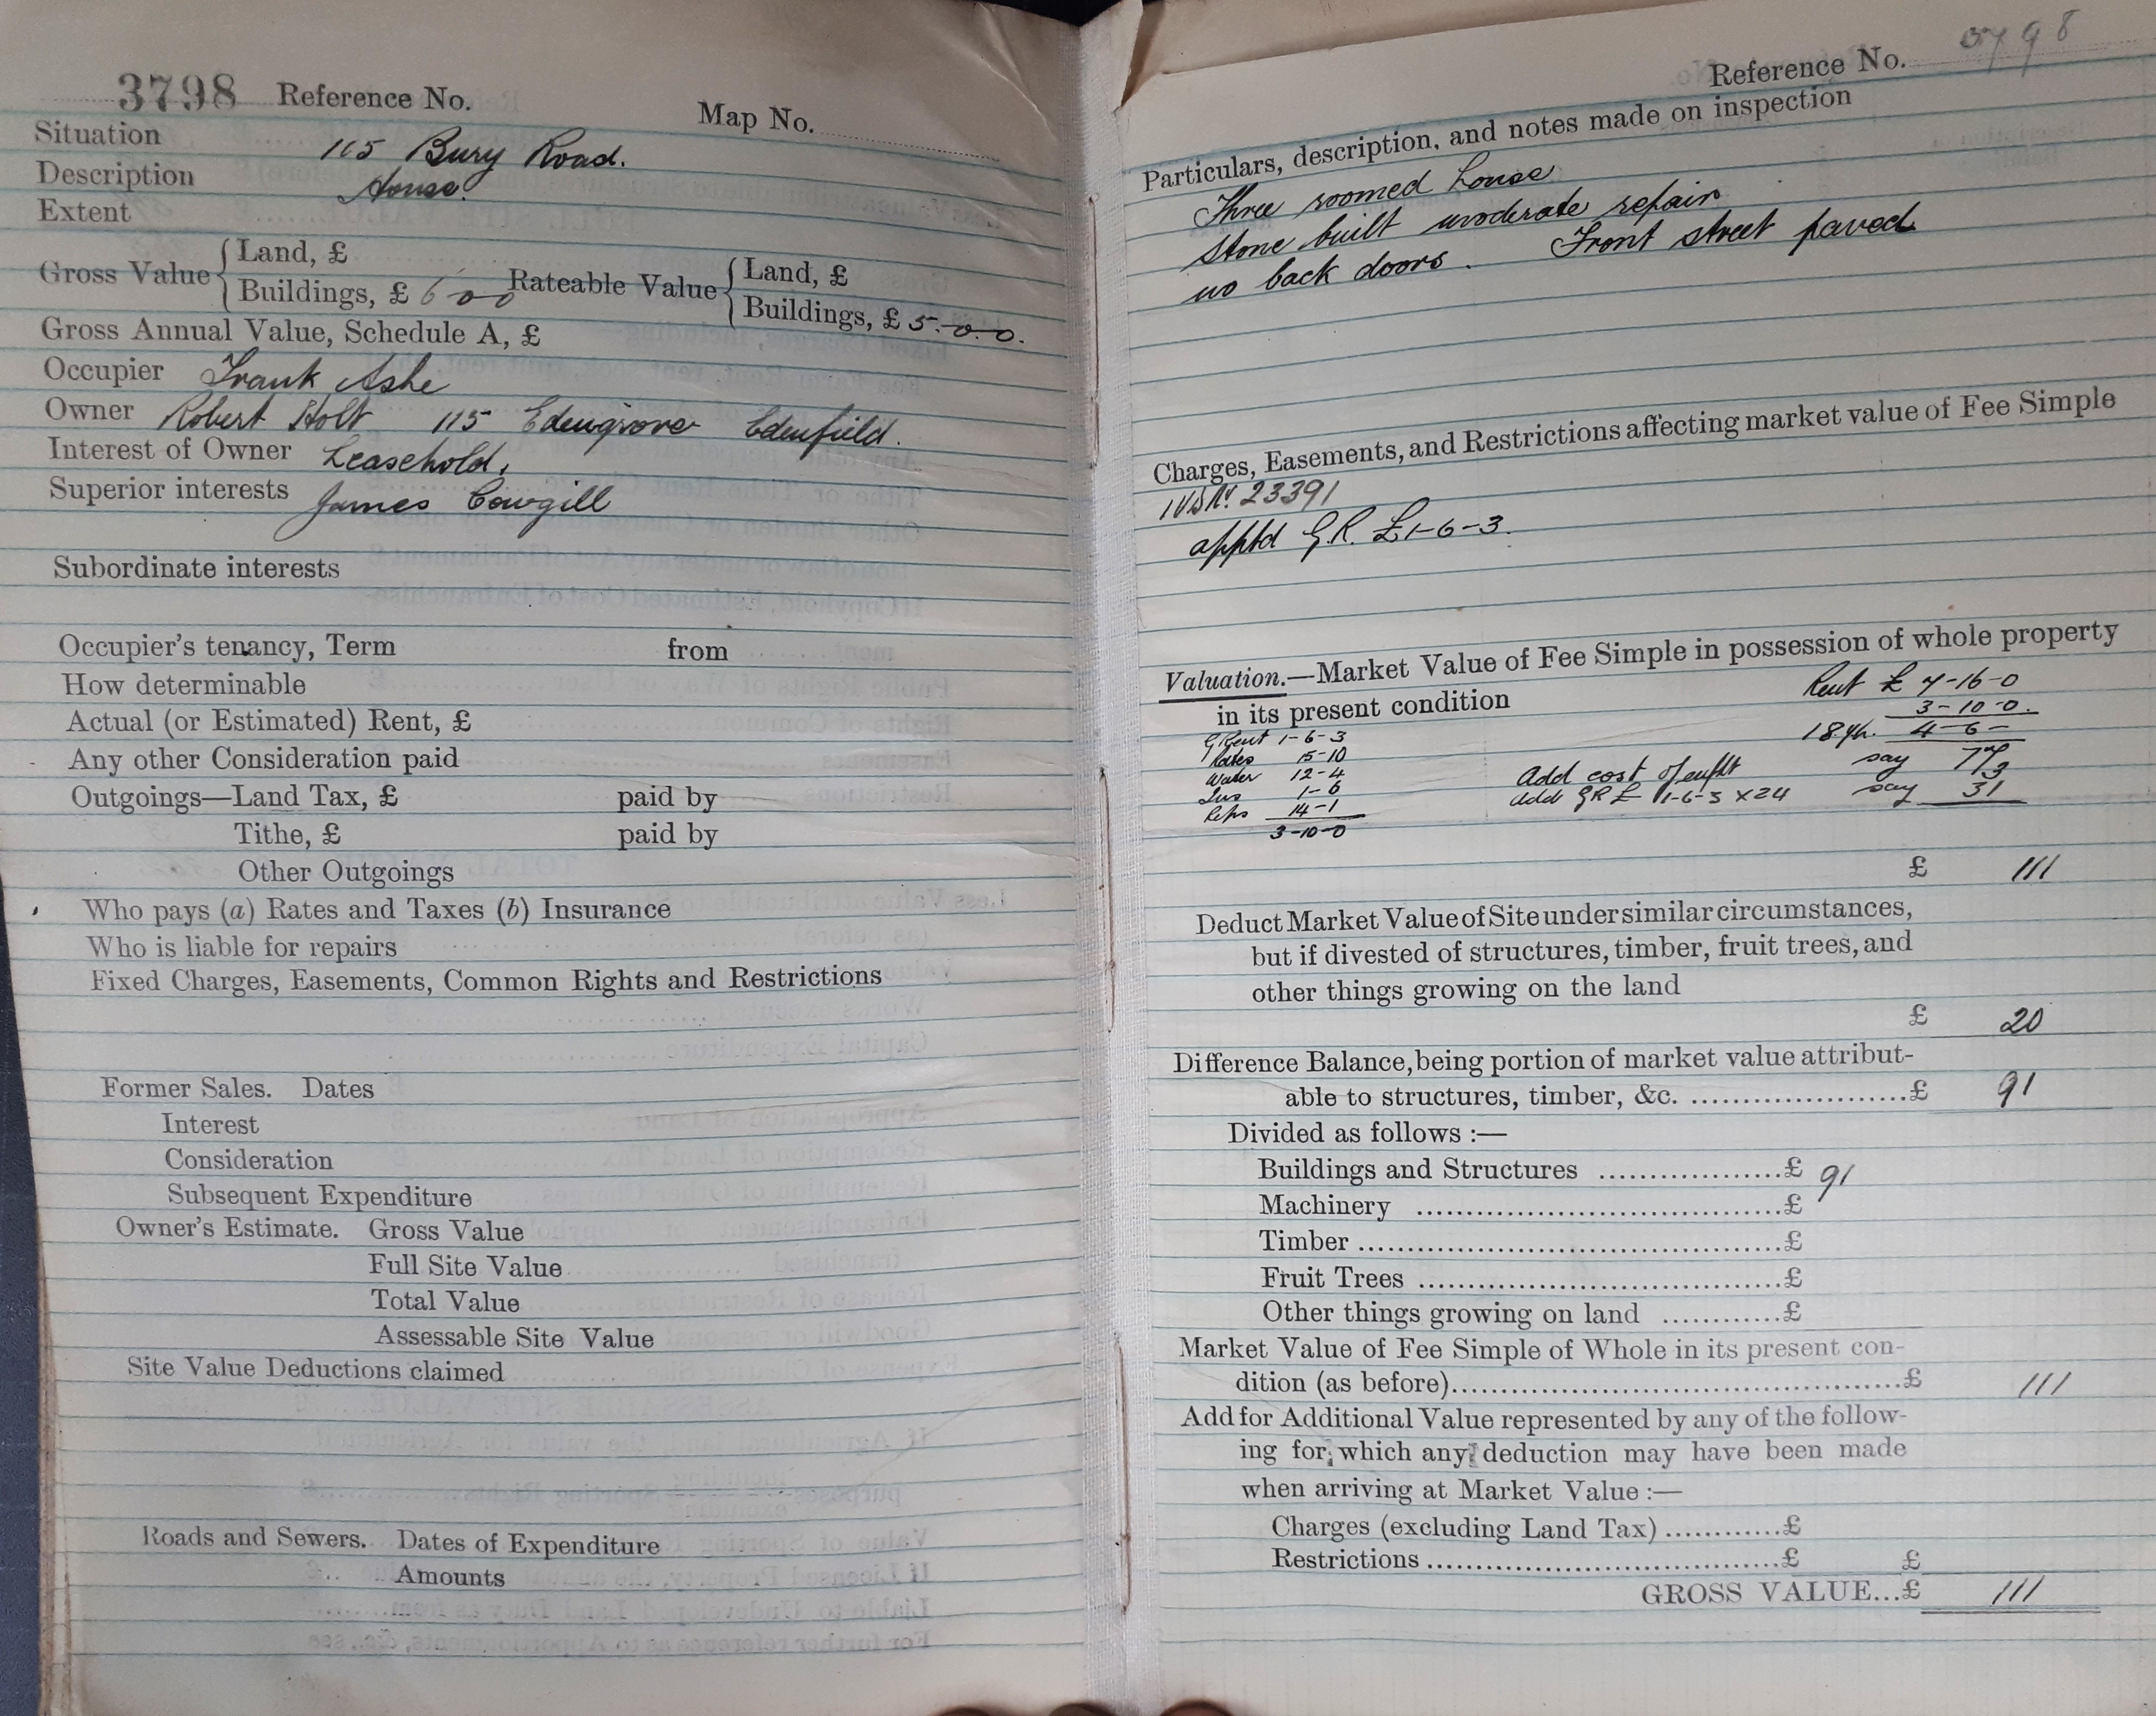 3798 Reference No. Map No.
Situation 115 Bury Road.
Description House.
Extent
Gross Value { Land, £
Buildings, £ 6-0-0 Rateable Value { Land, £
Buildings, £ 5-0-0.
Gross Annual Value, Schedule A, £
Occupier Frank Ashe
Owner Robert Holt 115 Edengrove Edenfield.
Interest of Owner Leasehold,
Superior interests James Cowgill
Subordinate interests
Occupier's tenancy, Term from
How determinable
Actual (or Estimated) Rent, £
Any other Consideration paid
Outgoings—Land Tax, £ paid by
Tithe, £ paid by
Other Outgoings
Who pays (a) Rates and Taxes (b) Insurance
Who is liable for repairs
Fixed Charges, Easements, Common Rights and Restrictions
Former Sales. Dates
Interest
Consideration
Subsequent Expenditure
Owner's Estimate. Gross Value
Full Site Value
Total Value
Assessable Site Value
Site Value Deductions claimed
Roads and Sewers. Dates of Expenditure
Amounts
Reference No. 3798
Particulars, description, and notes made on inspection
Three roomed house
stone built moderate repair
no back doors. Front street paved
Charges, Easements, and Restrictions affecting market value of Fee Simple
23391
apptd G.R. £1-6-3.
Valuation.—Market Value of Fee Simple in possession of whole property
in its present condition Rent £ 7-16-0
G Rent 1-6-3 3-10-0.
Rates 15-10 18 yh. 4-6-
Water 12-4 say 77
Ins 1-6 Add cost of say 3
Reps 14-1 add GR £ 1-6-3 x 24 say 31
3-10-0
£ 111
Deduct Market Value of Site under similar circumstances,
but if divested of structures, timber, fruit trees, and
other things growing on the land
£ 20
Difference Balance, being portion of market value attribut-
able to structures, timber, &c. ....................£ 91
Divided as follows :—
Buildings and Structures .................£ 91
Machinery ....................................£
Timber .........................................£
Fruit Trees ...................................£
Other things growing on land ............£
Market Value of Fee Simple of Whole in its present con-
dition (as before)..........................................£ 111
Add for Additional Value represented by any of the follow-
ing for which any deduction may have been made
when arriving at Market Value :—
Charges (excluding Land Tax) ............£
Restrictions ...................................£ £
GROSS VALUE...£ 111